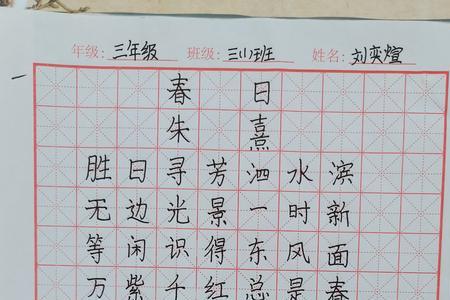 年级: 三年级 班级: 三(1)班 姓名: 刘奕煊
春日
朱熹
胜日寻芳泗水滨
无边光景一时新
等闲识得东风面
万紫千红总是春